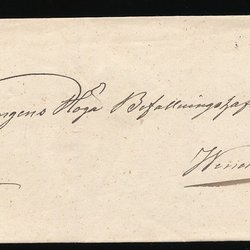 ungens Höga Befallningshaf